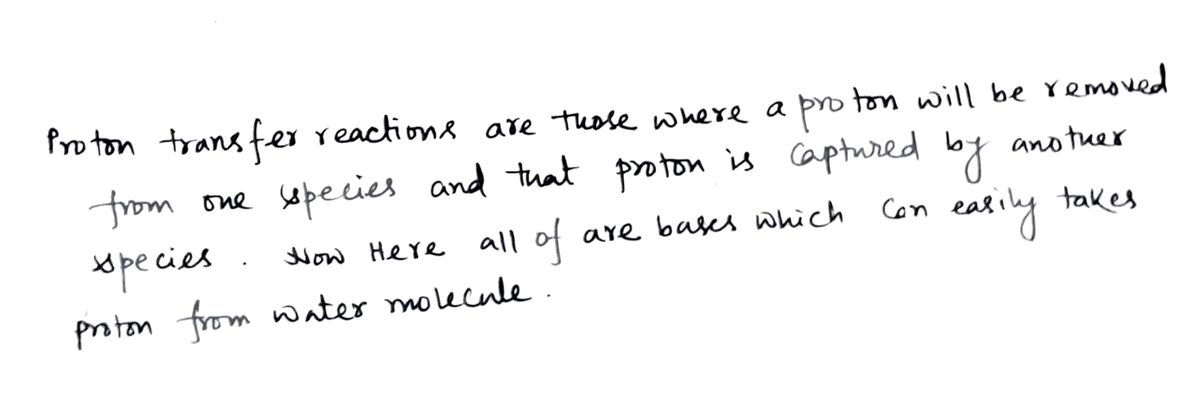 Proton transfer reactions are those where a proton will be removed
from one species and that proton is captured by another
species. Now Here all of are bases which can easily takes
proton from water molecule.